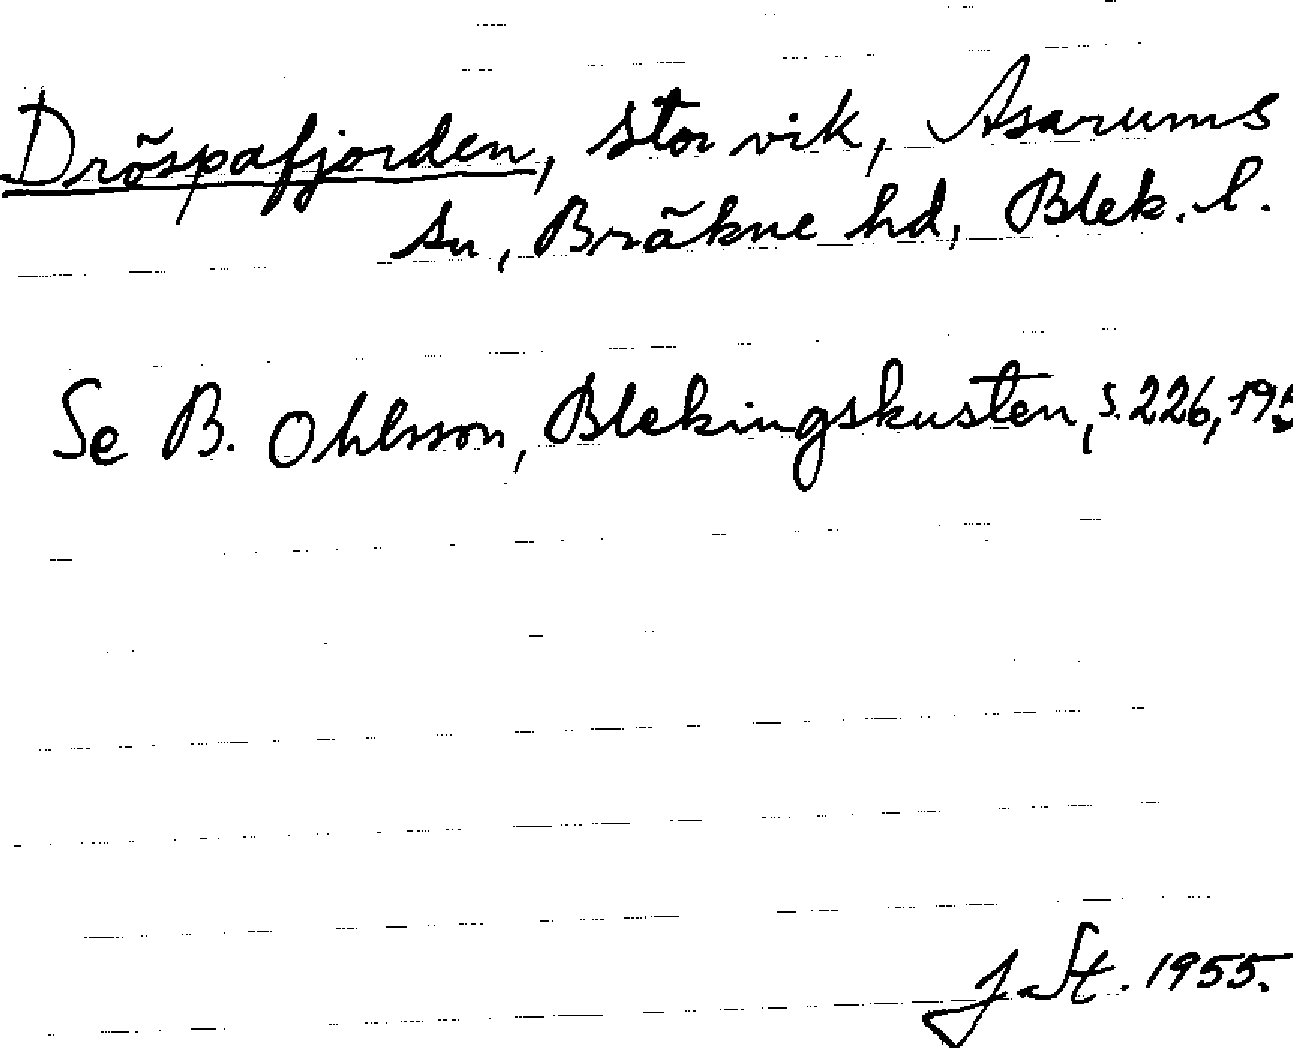 Dröspafjorden, stor vik, Asarums
sn, Bräkne hd, Blek. l.
Se B. Ohlsson, Blekingskusten, s. 226, 195
J. St. 1955.